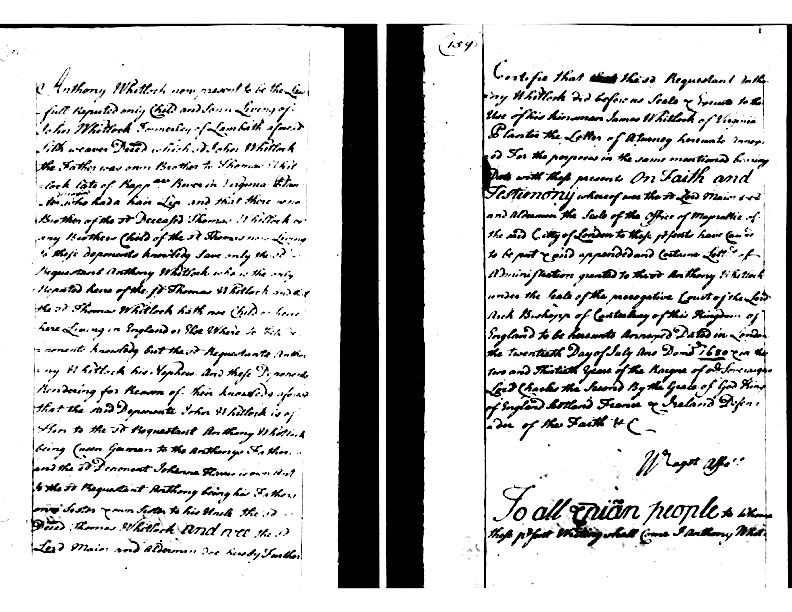 Anthony Whitlock now present to be the Law
full Reputed only Child and Sonn Living of
John Whitlock Formerley of Lambeth afores:d
Silk weaver Deced which sd John Whitlock
the Father was own Brother to Thomas Whit
lock late of Rapp Rever in Virginia
who had a hair Lip and that there is no
Brother of the sd Deceased Thomas Whitlock or
any Brothers Child of the sd Thomas now Living
to these deponents knowledg Save only the sd
Requestant Anthony Whitlock who is the only
Reputed heire of the sd Thomas Whitlock and that
the sd Thomas Whitlock hath noe Child or
here Living in England or Else Where to
knowledg but the sd Requestante Antho
ny Whitlock his Nephew And these Deponents
Rendering for Reason of their knowledg
that the said Deponente John Whitlock is of
to the sd Requestant Anthony Whitlock
being Cusen German to the Anthonys Father
and the sd Deponent Johanna is own Ant
to the sd Requestant Anthony being his Fathers
own Sister & own Sister to his Uncle the sd
Deced Thomas Whitlock and wee the sd
Lord Maior and Alderman doe hereby Further
(159)
Certifie that the sd Requestant Antho
ny Whitlock did before us Seale & Execute to the
Use of his kinsman James Whitlock of Virginia
Planter the Letter of Atorney hereunto
ed For the purposes in the same mentioned bearing
Date with these presents On Faith and
Testimony whereof wee the sd Lord Maior
and Aldermen the Seale of the Office of Majoraltie of
the said City of London to these psents have Caused
to be put & and appended and Certaine Letters of
Administration granted to the sd Anthony Whitlock
under the Seale of the prerogative Court of the Lord
Arch Bishopp of Canterbury of this Kingdom of
England to be hereunto Annexed Dated in London
the twentieth Day of July Ano Domi 1680 & in the
two and Thirtieth Yeare of the Raigne of
Lord Charles the Second By the Grace of God King
of England Scotland France & Ireland Defen
der of the Faith &C
To all xpian people to whome
these psent Writing shall Come I Anthony Whit